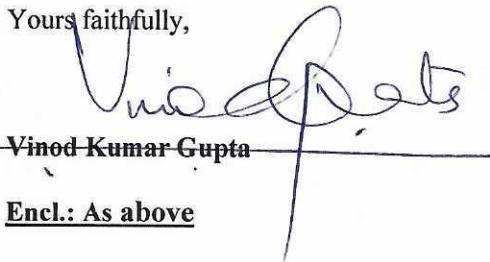 Yours faithfully,
Vinod Gupta
Vinod Kumar Gupta
Encl.: As above